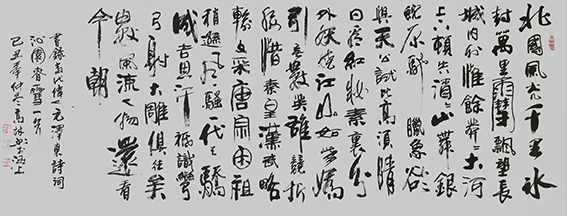 北國風光千里冰
封萬里雪飄望長
城内外惟餘莽莽大河
上下頓失滔滔山舞銀
蛇原馳臘象欲
與天公試比高須晴
日看紅妝素裹分
外妖嬈江山如此多嬌
引無數英雄競折
腰惜秦皇漢武略
輸文采唐宗宋祖
稍遜風騷一代天驕
成吉思汗祇識彎
弓射大雕俱往矣
數風流人物還看
今朝
書錄偉人毛澤東詩詞
沁園春雪一首
己丑年仲冬高林书於滬上